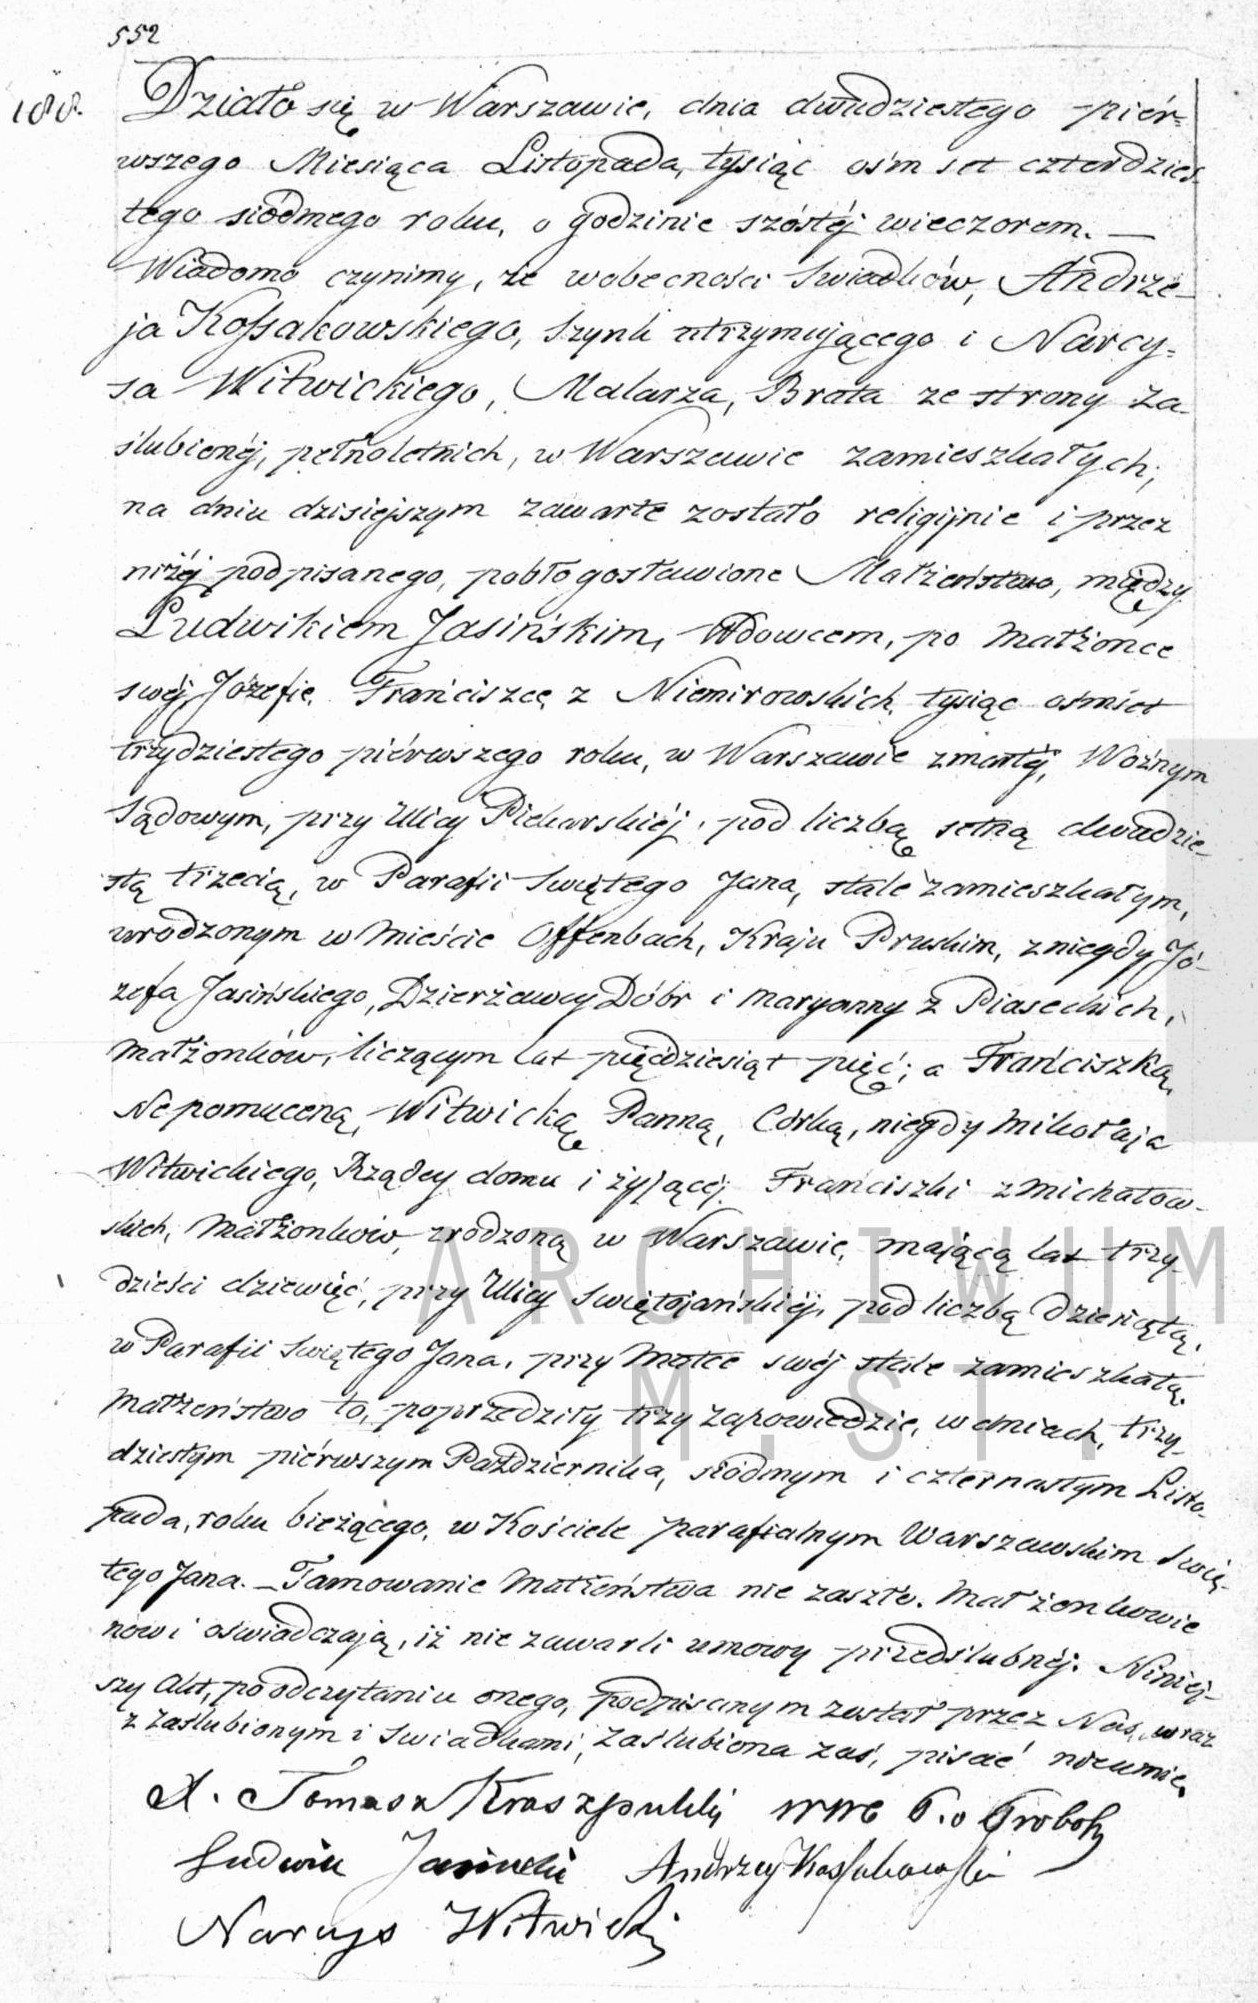 552
188. Działo się w Warszawie, dnia dwudziestego piér=
wszego Miesiąca Listopada, tysiąc ośm set czterdzies-
tego siódmego roku, o godzinie szóstéj wieczorem. —
Wiadomo czynimy, że wobecności Swiadków, Andrze-
ja Kossakowskiego, Szynk utrzymującego i Narcy=
sa Witwickiego, Malarza, Brata ze strony Za-
ślubionéj, pełnoletnich, w Warszawie zamieszkałych;
na dniu dzisiejszym zawarte zostało religijnie i przez
niżéj podpisanego, pobłogosławione Małżeństwo, między
Ludwikiem Jasińskim, Wdowcem, po Małżonce
swéj, Józefie Franciszce z Niemirowskich, tysiąc ośmset
trzydziestego piérwszego roku, w Warszawie zmarłéj, Woźnym
Sądowym, przy Ulicy Piekarskiéj, pod liczbą setną dwudzie-
stą trzecią, w Parafii Swiętego Jana, stale zamieszkałym,
urodzonym w Mieście Offenbach, Kraju Pruskim, z niegdy Jó-
zefa Jasińskiego, Dzierżawcy Dóbr i Maryanny z Piaseckich,
Małżonków, liczącym lat pięćdziesiąt pięć; a Franciszką
Nepomuceną, Witwicką Panną, Córką, niegdy Mikołaja
Witwickiego, Rządcy domu i żyjącéj Franciszki z Michałow-
skich, Małżonków, zrodzoną w Warszawie, mającą lat trzy
dzieści dziewięć, przy Ulicy Swiętojańskiéj, pod liczbą dziesiątą,
w Parafii Swiętego Jana, przy Matce swéj stale zamieszkałą.
Małżeństwo to, poprzedziły trzy Zapowiedzie, w dniach, trzy-
dziestym piérwszym Października, siódmym i czternastym Listo-
pada, roku bieżącego, w Kościele parafialnym Warszawskim Swię-
tego Jana. — Tamowanie Małżeństwa nie zaszło. Małżonkowie
nowi oświadczają, iż nie zawarli umowy przedślubnéj. Niniéj-
szy Akt, po odczytaniu onego, podpisanym został przez Nas, wraz
z zaślubionym i Swiadkami, Zaślubiona zaś, pisać nieumie.
X. Tomasz
Ludwik Jasinski Andrzey Kossakowski
Narcys Witwicki
ARCHIWUM
M.ST.